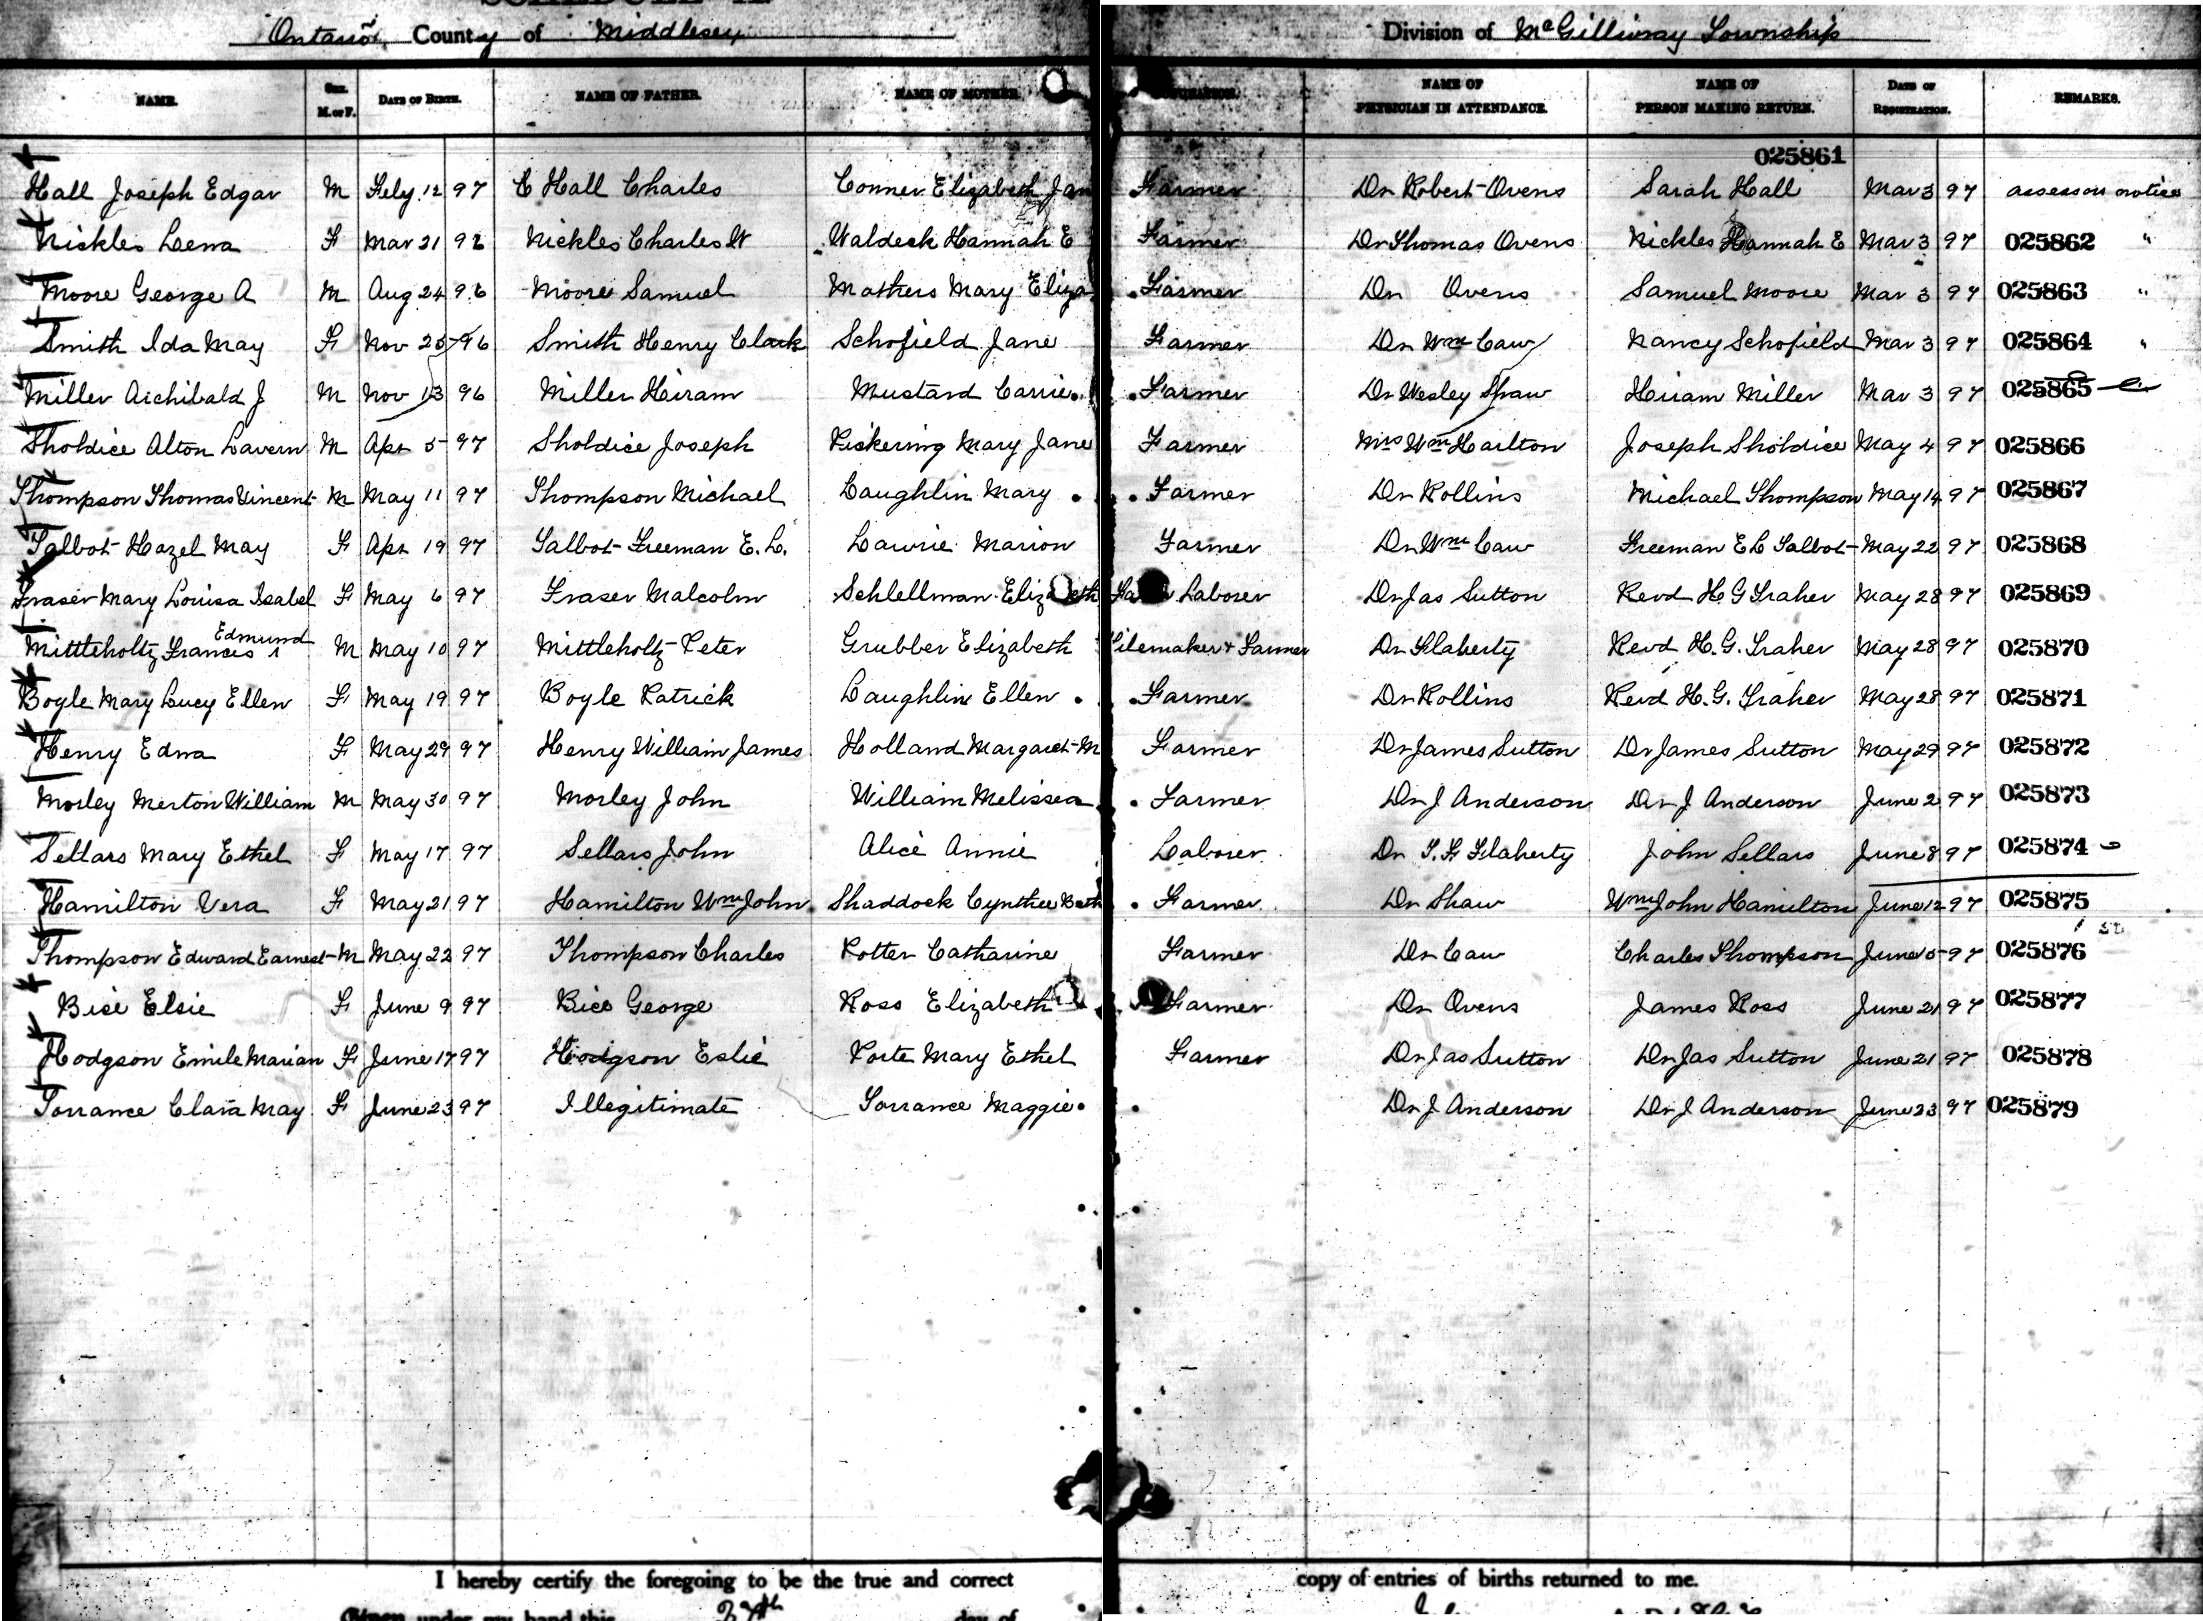 Ontario, County of Middlesex Division of McGillivray Township
NAME. Sex. M. or F. DATE OF BIRTH. NAME OF FATHER. NAME OF MOTHER. NAME OF PHYSICIAN IN ATTENDANCE. NAME OF PERSON MAKING RETURN. DATE OF REGISTRATION. REMARKS.
025861
Hall Joseph Edgar M Feby 12 97 C Hall Charles Conner Elizabeth Jan Farmer Dr Robert Ovens Sarah Hall Mar 3 97 assessors notice
Nickles Leena F Mar 21 92 Nickles Charles W Waldeck Hannah E Farmer Dr Thomas Ovens Nickles Hannah E Mar 3 97 025862 "
Moore George A M Aug 24 96 Moore Samuel Mathers Mary Eliza Farmer Dr Ovens Samuel Moore Mar 3 97 025863 "
Smith Ida May F Nov 25 96 Smith Henry Clark Schofield Jane Farmer Dr Wm Caw Nancy Schofield Mar 3 97 025864 "
Miller Archibald J M Nov 13 96 Miller Hiram Mustard Carrie Farmer Dr Wesley Shaw Hiram Miller Mar 3 97 025865
Sholdice Alton Lavern M Apr 5 97 Sholdice Joseph Pickering Mary Jane Farmer Mrs Wm Harlton Joseph Sholdice May 4 97 025866
Thompson Thomas Vincent M May 11 97 Thompson Michael Laughlin Mary Farmer Dr Rollins Michael Thompson May 14 97 025867
Talbot Hazel May F Apr 19 97 Talbot Freeman E. L. Lawrie Marion Farmer Dr Wm Caw Freeman E L Talbot May 22 97 025868
Fraser Mary Louisa Isabel F May 6 97 Fraser Malcolm Schlellman Elizabeth Laborer Dr Jas Sutton Revd H G Traher May 28 97 025869
Edmund
Mittleholtz Francis M May 10 97 Mittleholtz Peter Grubber Elizabeth Tilemaker & Farmer Dr Flaherty Revd H. G. Traher May 28 97 025870
Boyle Mary Lucy Ellen F May 19 97 Boyle Patrick Laughlin Ellen Farmer Dr Rollins Revd H. G. Traher May 28 97 025871
Henry Edna F May 29 97 Henry William James Holland Margaret M Farmer Dr James Sutton Dr James Sutton May 29 97 025872
Morley Merton William M May 30 97 Morley John William Melissea Farmer Dr J Anderson Dr J Anderson June 2 97 025873
Sellars Mary Ethel F May 17 97 Sellars John Alice Annie Laborer Dr T. F. Flaherty John Sellars June 8 97 025874
Hamilton Vera F May 21 97 Hamilton Wm John Shaddock Cynthee Beth Farmer Dr Shaw Wm John Hamilton June 12 97 025875
Thompson Edward Earnest M May 22 97 Thompson Charles Potter Catharine Farmer Dr Caw Charles Thompson June 15 97 025876
Bice Elsie F June 9 97 Bice George Ross Elizabeth Farmer Dr Ovens James Ross June 21 97 025877
Hodgson Emile Marian F June 17 97 Hodgson Eslie Porte Mary Ethel Farmer Dr Jas Sutton Dr Jas Sutton June 21 97 025878
Torrance Clara May F June 23 97 Illegitimate Torrance Maggie Dr J Anderson Dr J Anderson June 23 97 025879
I hereby certify the foregoing to be the true and correct copy of entries of births returned to me.
Given under my hand this day of